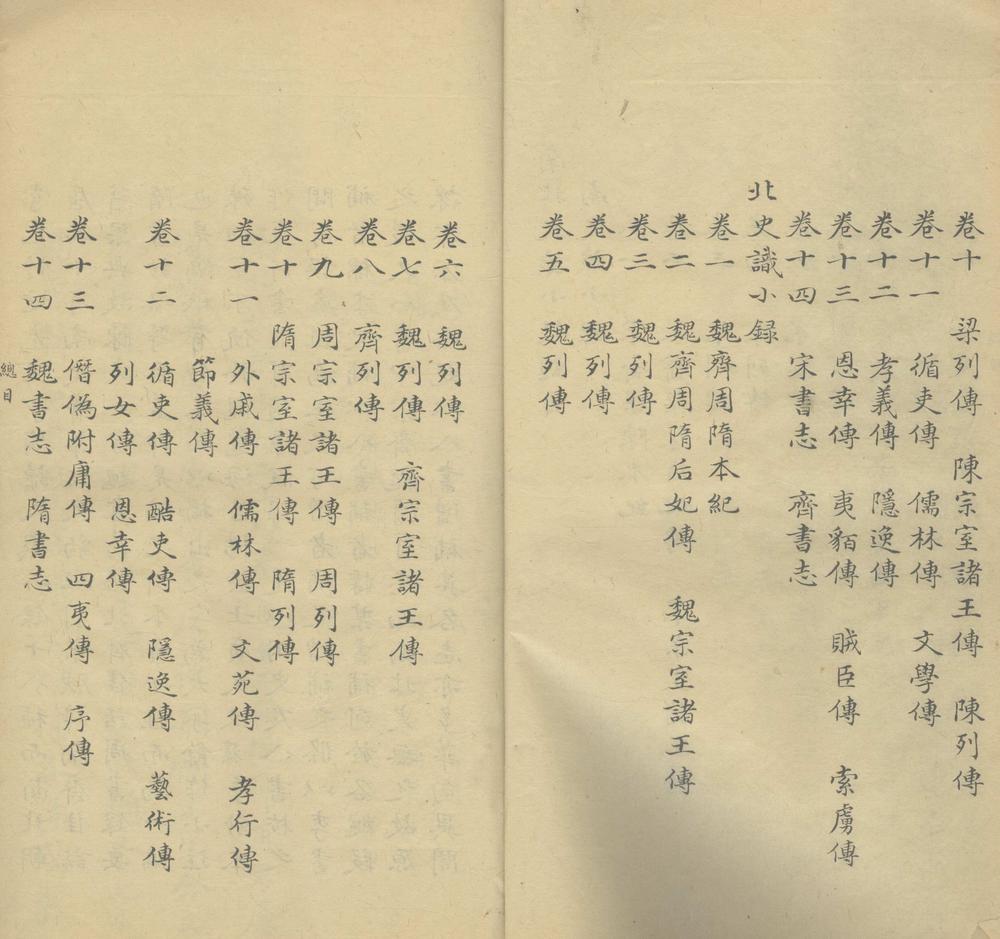 卷十 梁列傳 陳宗室諸王傳 陳列傳
卷十一 循吏傳 儒林傳 文學傳
卷十二 孝義傳 隱逸傳
卷十三 恩幸傳 夷貊傳 賊臣傳 索虜傳
卷十四 宋書志 齊書志
北史識小録
卷一 魏齊周隋本紀
卷二 魏齊周隋后妃傳 魏宗室諸王傳
卷三 魏列傳
卷四 魏列傳
卷五 魏列傳
卷六 魏列傳
卷七 魏列傳 齊宗室諸王傳
卷八 齊列傳
卷九 周宗室諸王傳 周列傳
卷十 隋宗室諸王傳 隋列傳
卷十一 外戚傳 儒林傳 文苑傳 孝行傳
節義傳
卷十二 循吏傳 酷吏傳 隱逸傳 藝術傳
列女傳 恩幸傳
卷十三 僭偽附庸傳 四夷傳 序傳
卷十四 魏書志 隋書志
總目